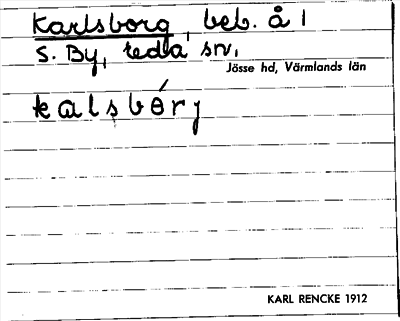 Karlsborg, beb. å 1
S. By, Eda sn,
Jösse hd, Värmlands län
kalsbérj
KARL RENCKE 1912